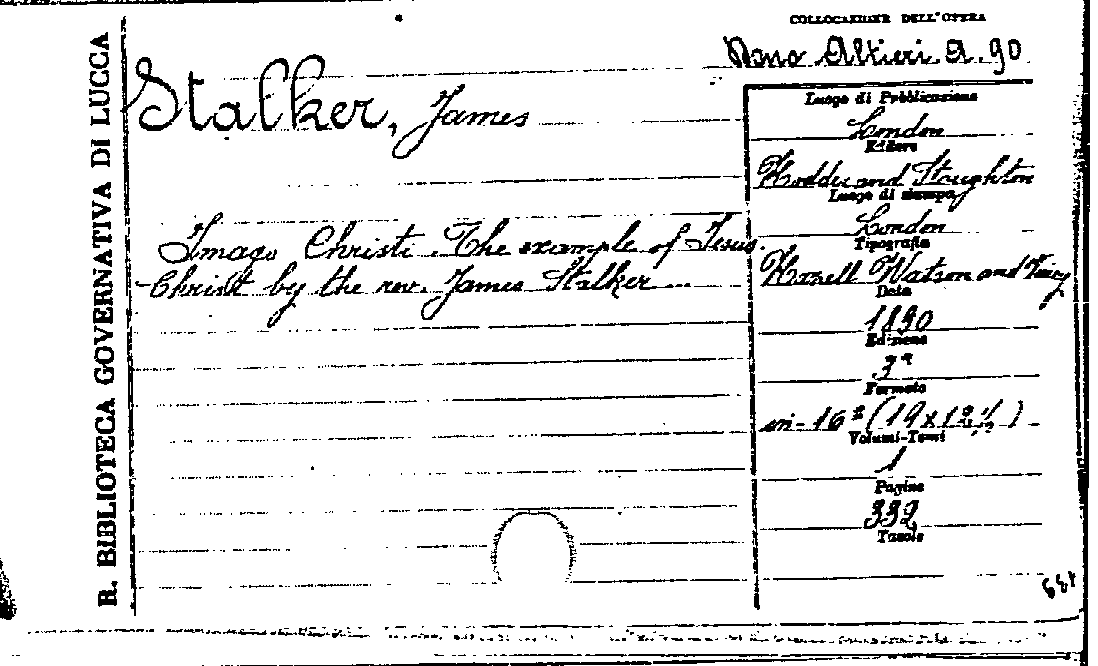 R. BIBLIOTECA GOVERNATIVA DI LUCCA
COLLOCAZIONE DELL'OPERA
Altieri A. 90
Stalker, James
Imago Christi. The example of Jesus.
Christ by the rev. James Stalker
Luogo di Pubblicazione
London
Editore
Hodder and Stoughton
Luogo di stampa
London
Tipografia
Watson and Viney
Data
1890
Edizione
3ª
Formato
in-16º (19x12½)
Volumi-Tomi
1
Pagine
332
Tavole